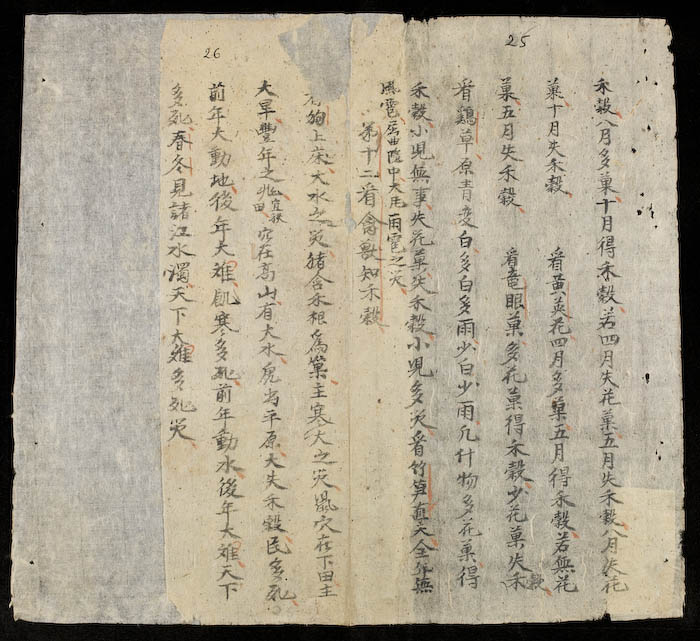 25
禾穀八月多菓十月得禾穀若四月失花菓五月失禾穀八月失花
菓十月失禾穀 看黃英花四月多菓五月得禾穀若無花
菓五月失禾穀 看竜眼菓多花菓得禾穀少花菓失禾穀
看鷄草原青变白多白多雨少白少雨凡什物多花菓得
禾穀小児無事失花菓失禾穀小児多災看竹笋直天全年無
風雹屈曲 中大 雨雹之災
第十二看禽獸知禾穀
狗上床大水之災猪含禾根為窠主寒大之災鼠穴在下田主
大旱豊年之兆 宜 田 穴在高山有大水虎当平原大失禾穀民多死
前年大動地後年大难飢寒多死前年動水後年大难天下
多死春冬見諸江水濁天下大难多死災
26